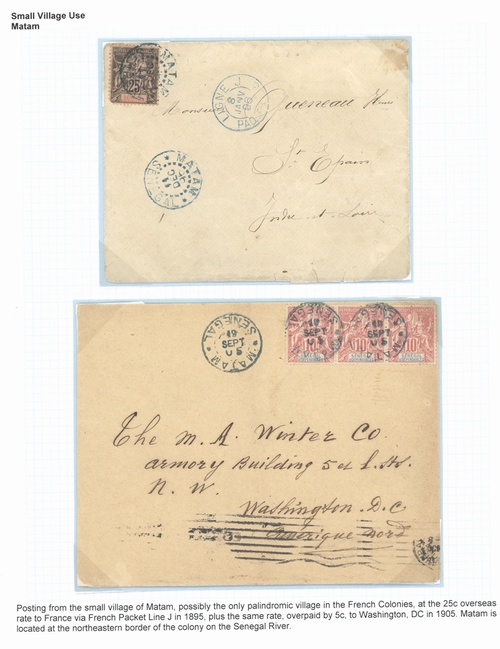 Small Village Use
Matam
25
MATAM
LIGNE J
8
JANV
96
PAQ
Monsieur Queneau Henri
MATAM
SENEGAL
DEC
St Epain
Indre-et-Loire
MATAM
19
SEPT
05
SENEGAL
10
19
SEPT
05
SENEGAL
10
19
SEPT
05
SENEGAL
10
The M. A. Winter Co.
Armory Building 5 et L. Sts.
N. W.
Washington. D. C
Amerique Nord
Posting from the small village of Matam, possibly the only palindromic village in the French Colonies, at the 25c overseas
rate to France via French Packet Line J in 1895, plus the same rate, overpaid by 5c, to Washington, DC in 1905. Matam is
located at the northeastern border of the colony on the Senegal River.